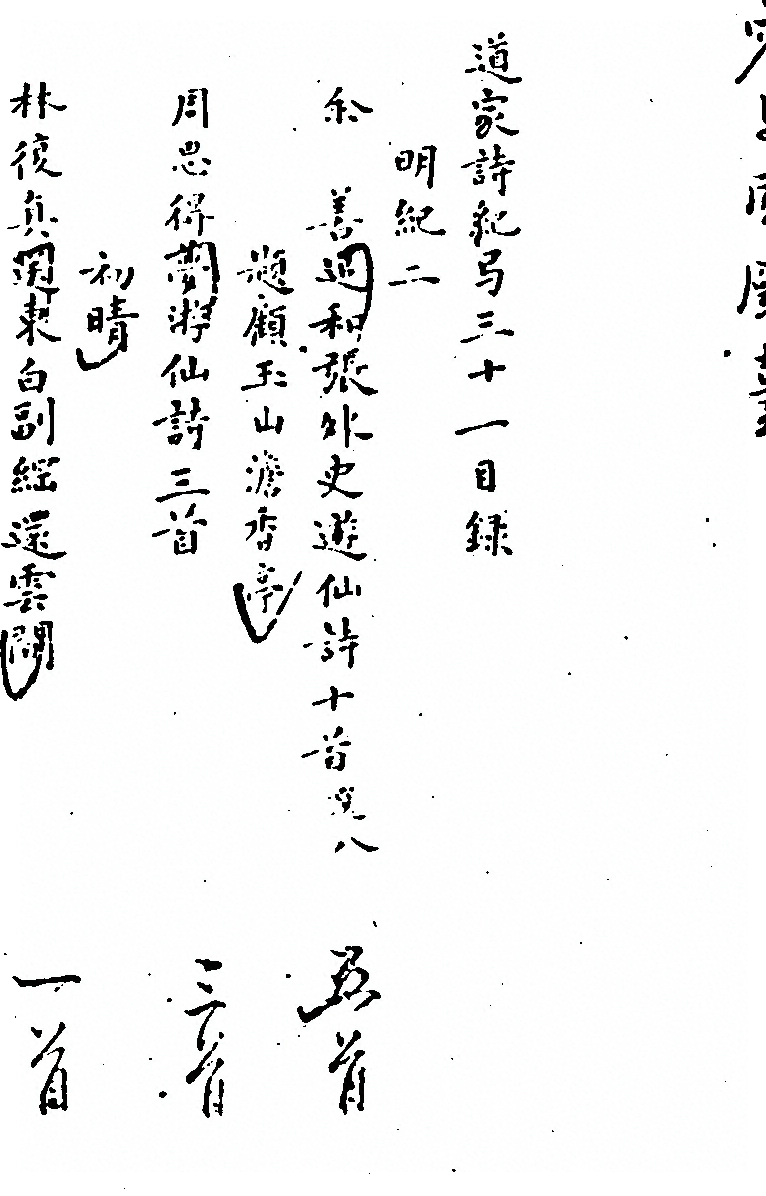 道家詩紀弓三十一目録
明紀二
余 善追和張外史遊仙詩十首見八 五首
題顧玉山澹香亭
周思得夢游仙詩三首 三首
初晴
林復真
東白副綱還雲間 一首